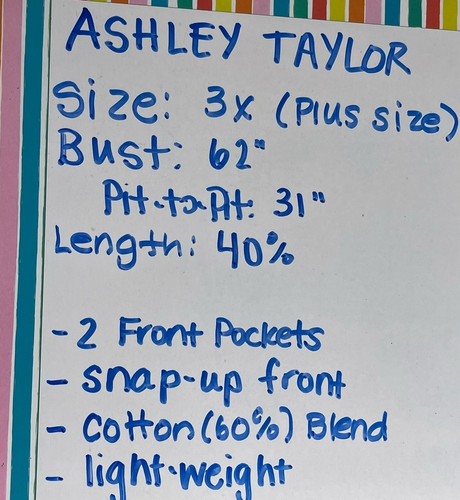 ASHLEY TAYLOR
Size: 3x (Plus size)
Bust: 62"
Pit-to-Pit: 31"
Length: 40%
- 2 Front Pockets
- snap-up front
- cotton (60%) Blend
- light-weight